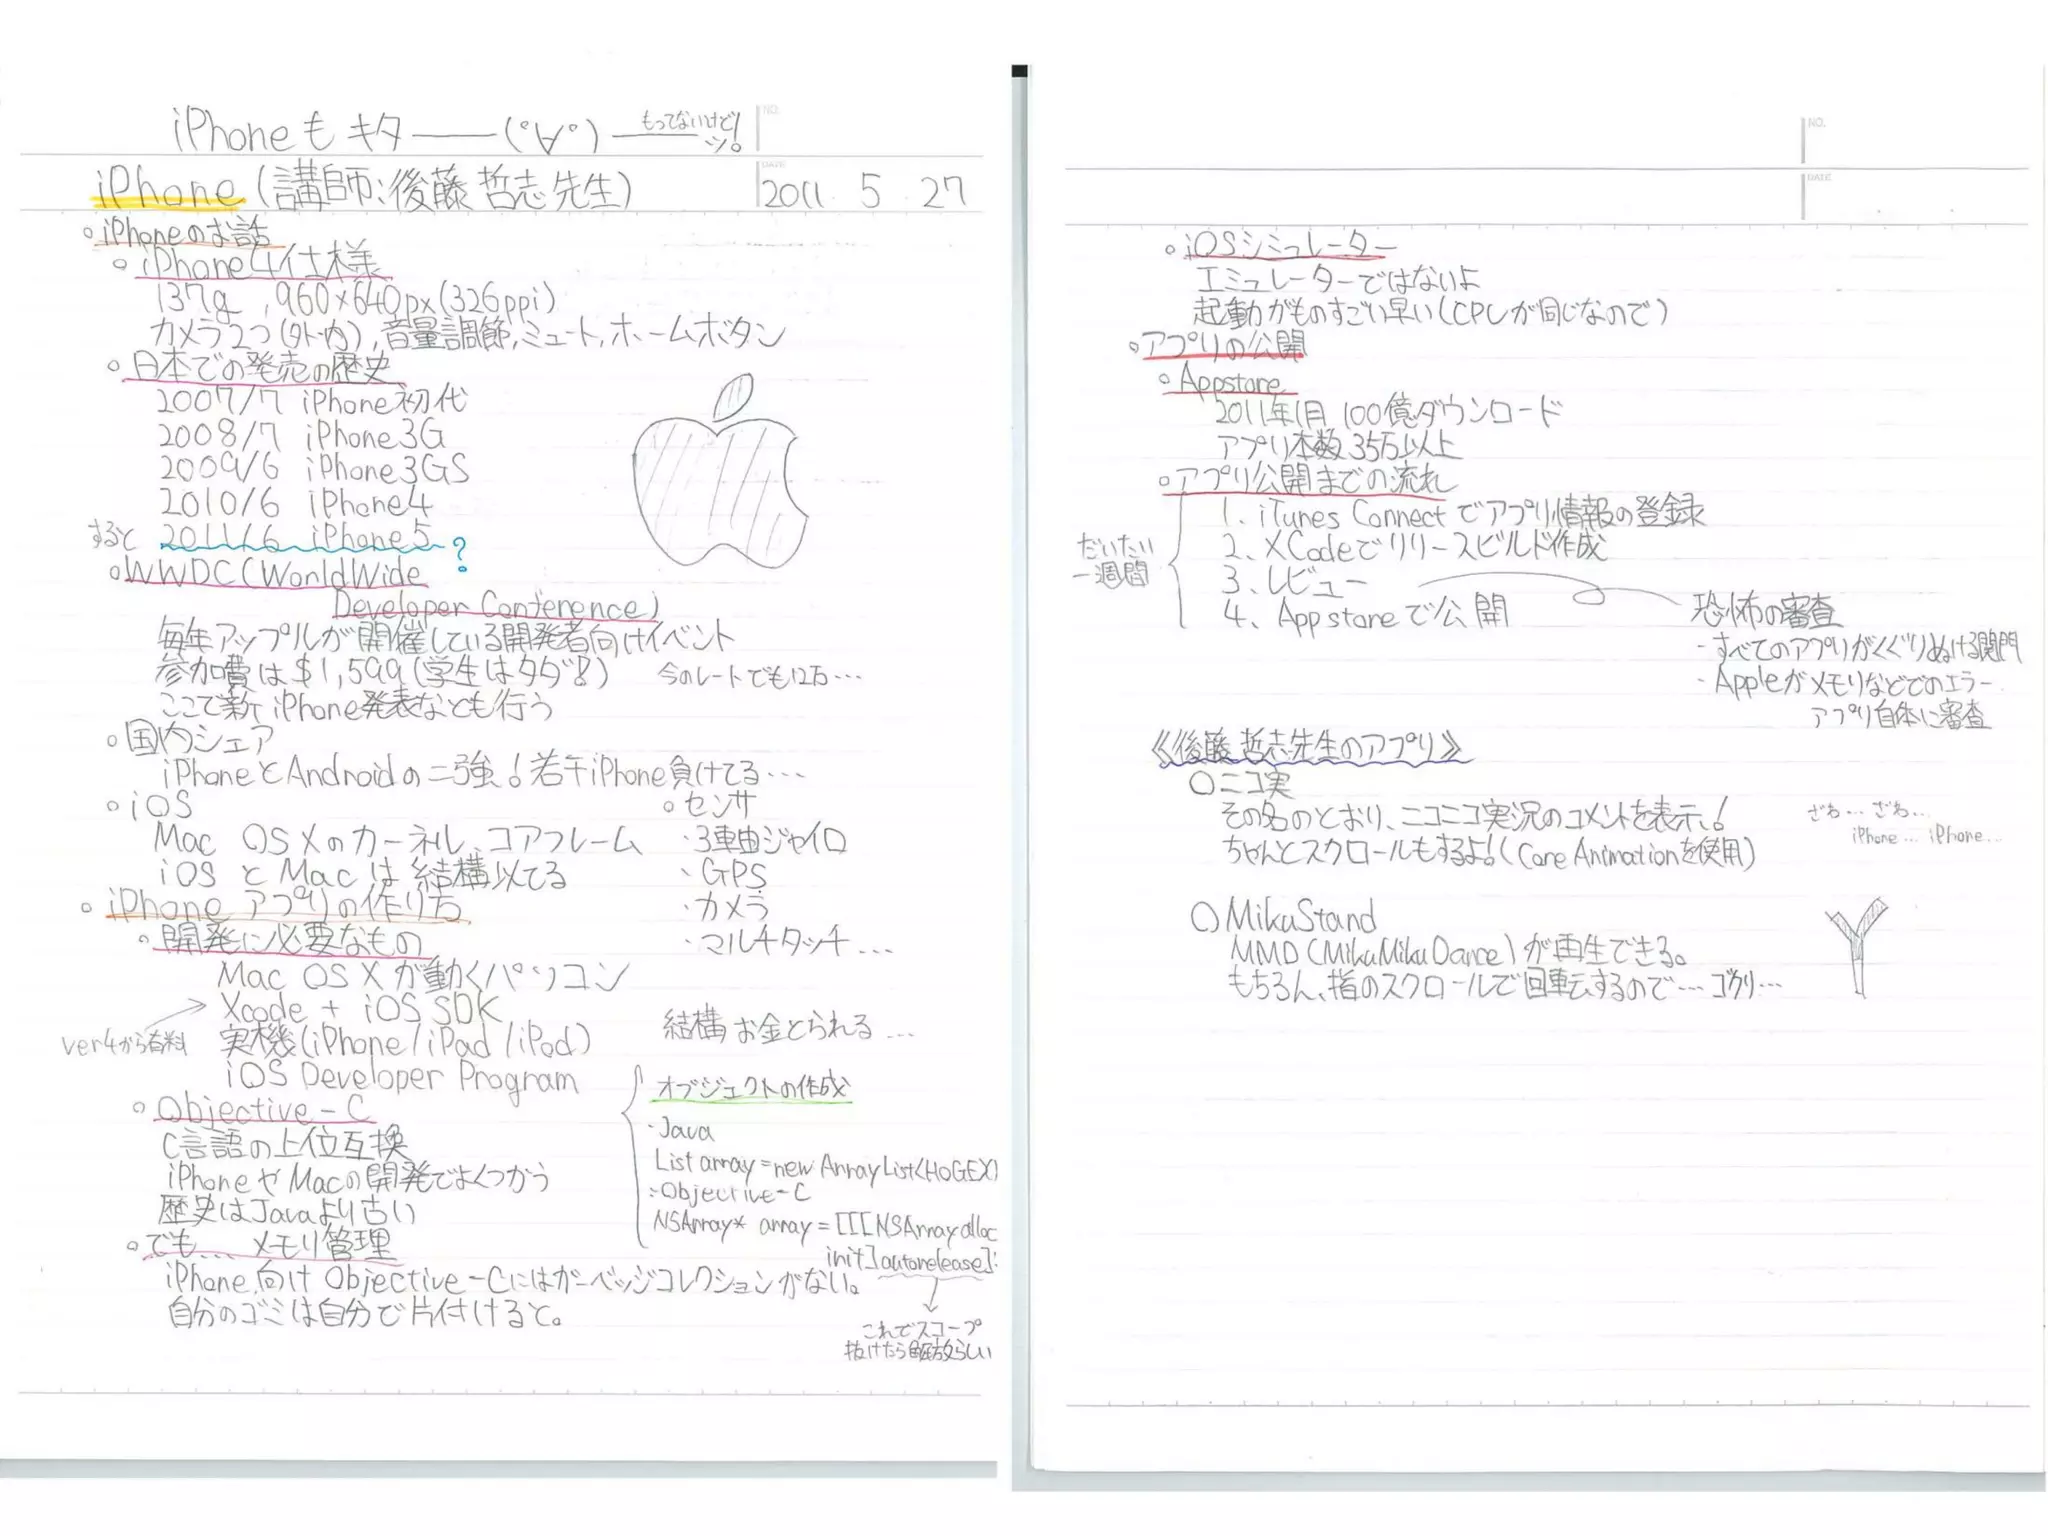 iPhoneもキタ――(ﾟ∀ﾟ)―― もってないけど! ッ。
NO.
iPhone(講師:後藤哲志先生)
DATE
2011 5 27
○iPhoneのお話
○iPhone4仕様
137g, 960×640px(326ppi)
カメラ2つ(外内),音量調節,ミュート,ホームボタン
○日本での発売の歴史
2007/7 iPhone初代
2008/7 iPhone3G
2009/6 iPhone3GS
2010/6 iPhone4
すると 2011/6 iPhone5?
○WWDC(WorldWide
Developer Conference)
毎年アップルが開催している開発者向けイベント
参加費は$1,599(学生はタダ!) 今のレートでも12万…
ここで新iPhone発表なども行う
○国内シェア
iPhoneとAndroidの二強!若干iPhone負けてる…
○iOS
Mac OS Xのカーネル、コアフレーム
iOSとMacは結構似てる
○センサ
・3軸ジャイロ
・GPS
・カメラ
・マルチタッチ…
○iPhoneアプリの作り方
○開発に必要なもの
Mac OS Xが動くパソコン
Xcode + iOS SDK
ver4から有料
実機(iPhone/iPad/iPod)
iOS Developer Program
結構お金とられる…
○Objective-C
C言語の上位互換
iPhoneやMacの開発でよくつかう
歴史はJavaより古い
オブジェクトの作成
・Java
List array=new ArrayList(HOGEX)
・Objective-C
NSArray* array=[[[NSArray alloc
init]autorelease];
これでスコープ
抜けたら解放らしい
○でも… メモリ管理
iPhone向けObjective-Cにはガーベッジコレクションがない。
自分のゴミは自分で片付けると。
NO.
DATE
○iOSシミュレーター
エミュレーターではないよ
起動がものすごい早い(CPUが同じなので)
○アプリの公開
○Appstore
2011年1月 100億ダウンロード
アプリ本数35万以上
○アプリ公開までの流れ
だいたい
一週間
1、iTunes Connectでアプリ情報の登録
2、XCodeでリリースビルド作成
3、レビュー
4、Appstoreで公開
恐怖の審査
・すべてのアプリがくぐりぬける関門
・Appleがメモリなどでのエラー
アプリ自体に審査
《後藤哲志先生のアプリ》
○ニコ実
その名のとおり、ニコニコ実況のコメントを表示!
ちゃんとスクロールもするよ!(Core Animationを使用)
ざわ…ざわ…
iPhone…iPhone…
○MikuStand
MMD(MikuMikuDance)が再生できる。
もちろん、指のスクロールで回転するので…ゴクリ…